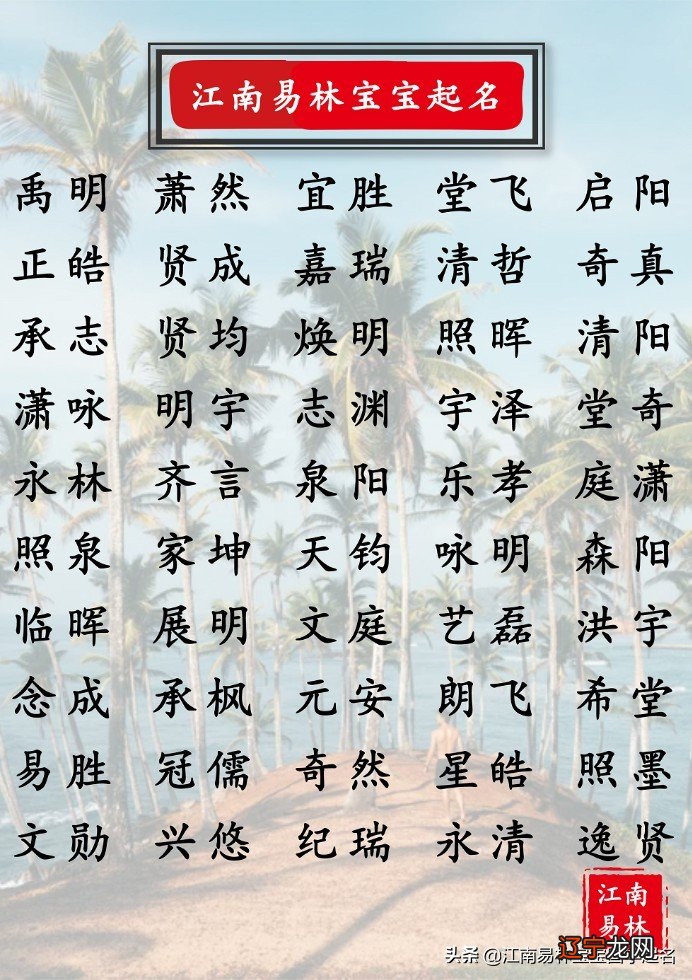 江南易林宝宝起名
禹明 萧然 宜胜 堂飞 启阳
正皓 贤成 嘉瑞 清哲 奇真
承志 贤均 焕明 照晖 清阳
潇咏 明宇 志渊 宇泽 堂奇
永林 齐言 泉阳 乐孝 庭潇
照泉 家坤 天钧 咏明 森阳
临晖 展明 文庭 艺磊 洪宇
念成 承枫 元安 朗飞 希堂
易胜 冠儒 奇然 星皓 照墨
文勋 兴悠 纪瑞 永清 逸贤
江南
易林
辽宁龙网
头条 @江南易林宝宝起名